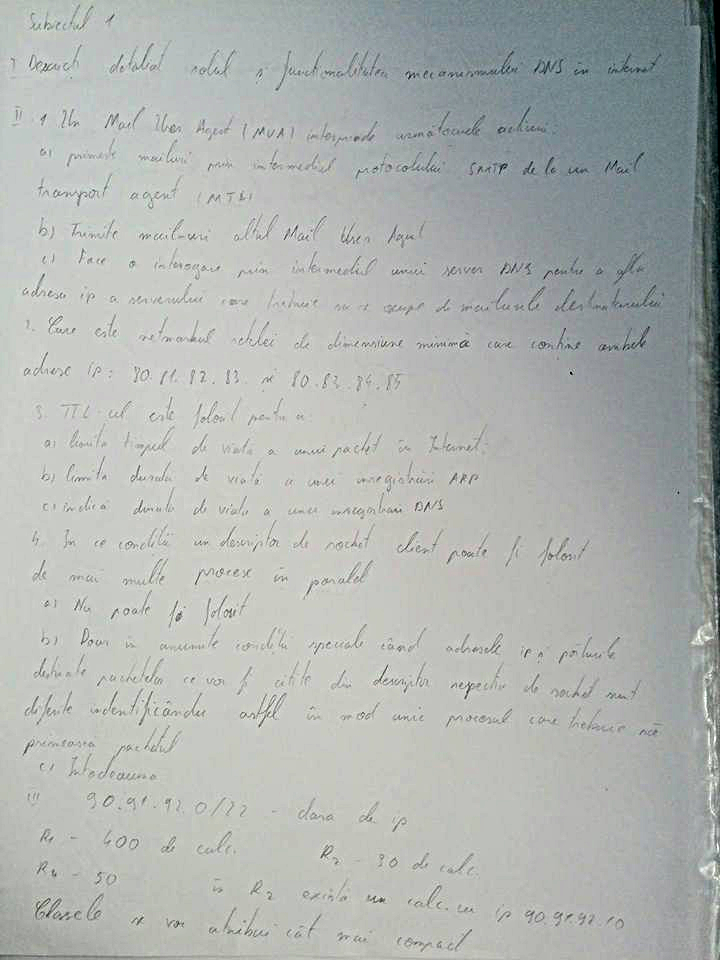 Subiectul 1
I Descrieți detaliat rolul și funcționalitatea mecanismului DNS în internet
II 1 Un Mail User Agent (MUA) întreprinde următoarele acțiuni:
a) primește mailuri prin intermediul protocolului SMTP de la un Mail
transport agent (MTA)
b) Trimite mailuri altui Mail User Agent
c) Face o interogare prin intermediul unui server DNS pentru a afla
adresa ip a serverului care trebuie să se ocupe de mailurile destinatarului
2. Care este netmaskul rețelei de dimensiune minimă care conține ambele
adrese ip: 80.81.82.83 și 80.83.84.85
3. TTL-ul este folosit pentru a:
a) limita timpul de viata a unui pachet în Internet;
b) limita durata de viață a unei inregistrări ARP
c) indică durata de viata a unei inregistrari DNS
4. In ce condiții un descriptor de socket client poate fi folosit
de mai multe procese în paralel
a) Nu poate fi folosit
b) Doar în anumite condiții speciale când adresele ip și porturile
destinate pachetelor ce vor fi citite din descriptor respectiv de socket sunt
diferite indentificându astfel în mod unic procesul care trebuie să
primeasca pachetul
c) Intodeauna
III 90.91.92.0/22 - clasa de ip
R1 - 400 de calc. R2 - 30 de calc.
R4 - 50 în R2 există un calc. cu ip 90.91.92.10
Clasele se vor atribui cât mai compact